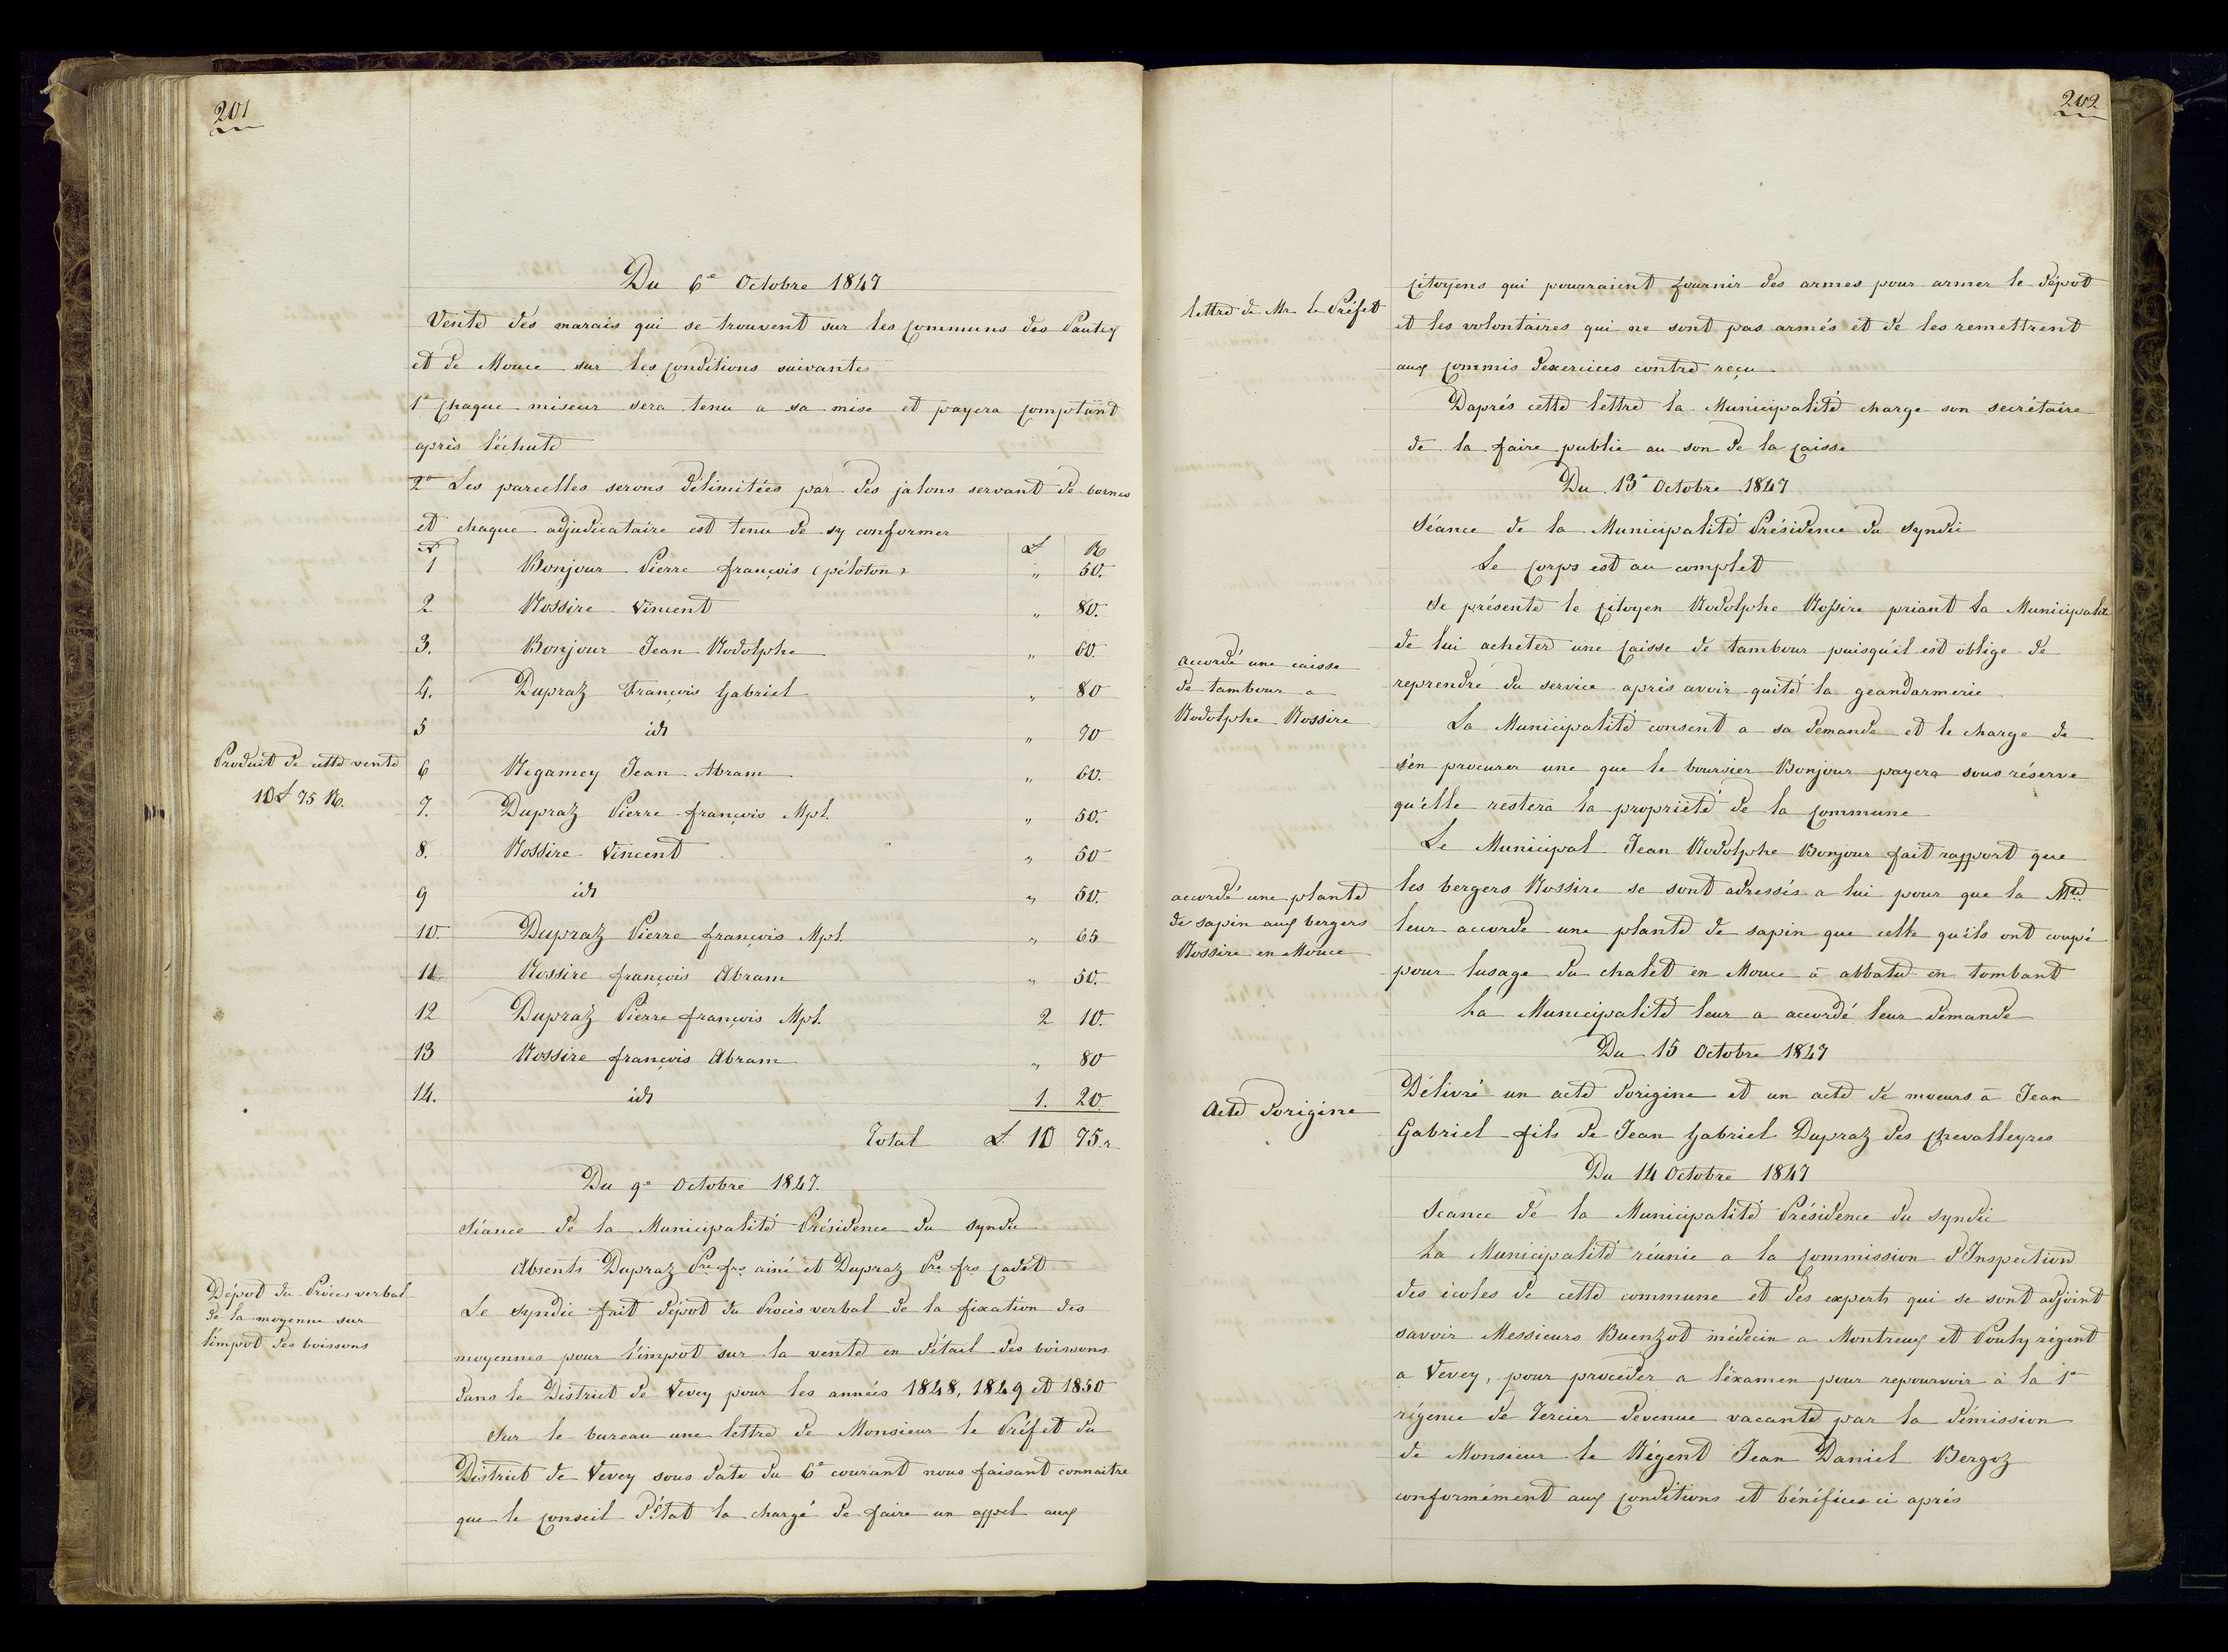 201
Du 6e Octobre 1847
Vente des marais qui se trouvent sur les communs des Pautex
et de Mouce sur les conditions suivantes
1e chaque miseur sera tenu a sa mise et payera comptant
après l'échute
2e Les parcelles serons délimitées par des jalons servant de bornes
et chaque adjudicataire est tenu de sy conformer
No L R
1 Bonjour Pierre françois (péloton) " 50.
2 Rossire Vincent " 80.
3. Bonjour Jean Rodolphe " 60.
4. Dupraz François Gabriel " 80
5 id " 70
Produit de cette vente
10 L 75 R.
6 Regamey Jean Abram " 60.
7. Dupraz Pierre françois Mpl. " 50.
8. Rossire Vincent " 50
9 id " 50.
10. Dupraz Pierre françois Mpl. " 65
11 Rossire françois Abram " 50.
12 Dupraz Pierre françois Mpl. 2 10.
13 Rossire françois Abram " 80
14. id 1. 20
Total L 10 75 r
Du 9e Octobre 1847.
Séance de la Municipalité Présidence du Syndic
Absents Dupraz Pre frs ainé et Dupraz Pre frs cadet
Dépot du Procès verbal
de la moyenne sur
l'impot des boissons
Le Syndic fait dépot du Procès verbal de la fixation des
moyennes pour l'impot sur la vente en détail des boissons
dans le District de Vevey pour les années 1848, 1849 et 1850
Sur le bureau une lettre de Monsieur le Préfet du
District de Vevey sous date du 6e courant nous faisant connaitre
que le conseil d'État la chargé de faire un appel aux
202
lettre de Mr le Préfet
citoyens qui pourraient fournir des armes pour armer le dépot
et les volontaires qui ne sont pas armés et de les remettrent
aux commis dexercices contre reçu
Daprés cette lettre la Municipalité charge son secrétaire
de la faire publie au son de la caisse
Du 13e Octobre 1847
Séance de la Municipalité Présidence du Syndic
Le corps est au complet
Se présente le citoyen Rodolphe Rossire priant la Municipalité
accordé une caisse
de tambour a
Rodolphe Rossire
de lui acheter une caisse de tambour puisqu'il est oblige de
reprendre du service aprés avoir quité la geandarmerie
La Municipalité consent a sa demande et le charge de
s'en procurer une que le boursier Bonjour payera sous réserve
qu'elle restera la propriété de la commune
Le Municipal Jean Rodolphe Bonjour fait rapport que
accordé une plante
de sapin aux bergers
Rossire en Mouce
les bergers Rossire se sont adressés a lui pour que la Mté
leur accorde une plante de sapin que celle qu'ils ont coupé
pour lusage du chalet en Mouce à abbatu en tombant
La Municipalité leur a accordé leur demande
Du 15 Octobre 1847
Acte d'origine
Délivré un acte dorigine et un acte de moeurs à Jean
Gabriel fils de Jean Gabriel Dupraz des Chevalleyres
Du 14 Octobre 1847
Séance de la Municipalité Présidence du Syndic
La Municipalité réunie a la commission d'Inspection
des écoles de cette commune et des experts qui se sont adjoint
savoir Messieurs Buenzot médecin a Montreux et Pouly régent
a Vevey, pour procéder a l'éxamen pour repourvoir à la 1e
régence de Tercier devenue vacante par la démission
de Monsieur le Régent Jean Daniel Bergoz
conformément aux conditions et bénéfices ci aprés